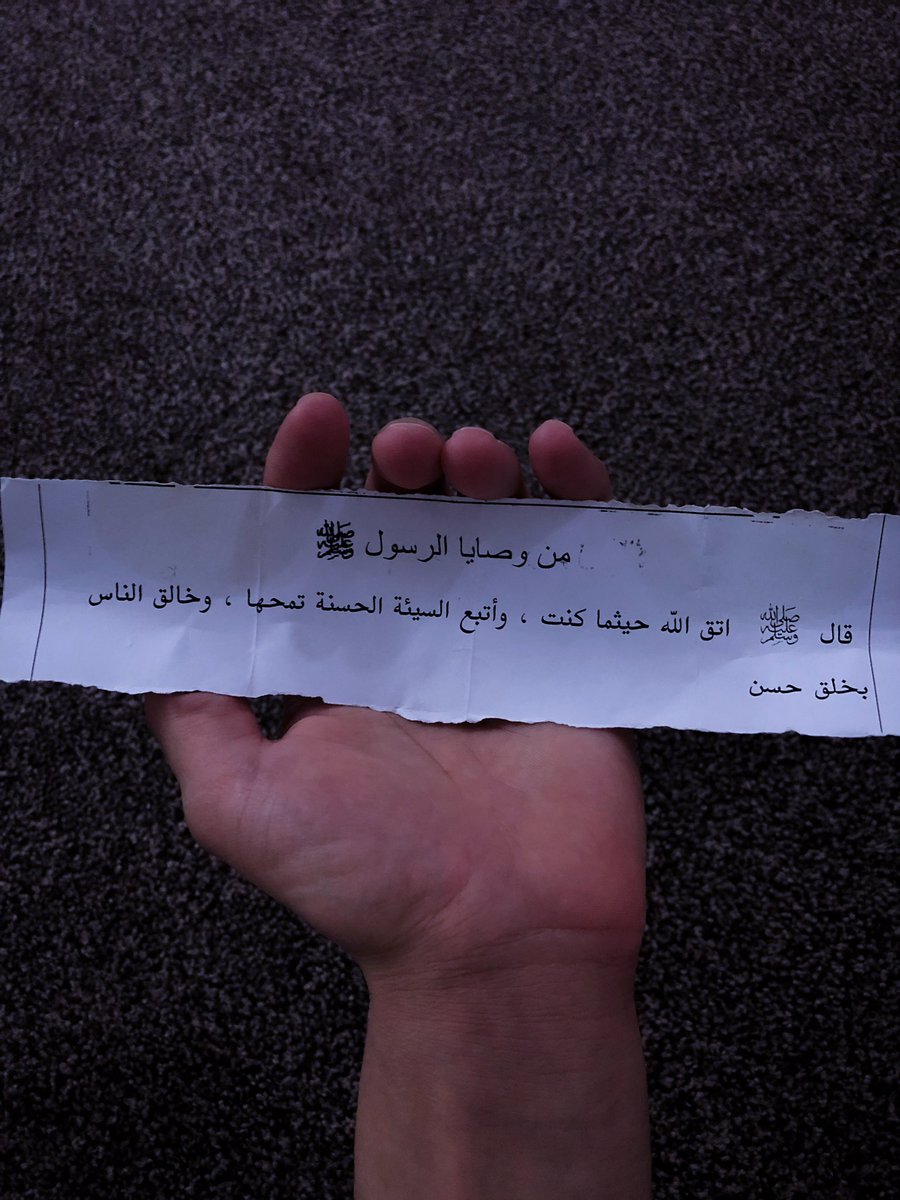 من وصايا الرسول ﷺ
قال ﷺ اتق الله حيثما كنت ، وأتبع السيئة الحسنة تمحها ، وخالق الناس
بخلق حسن